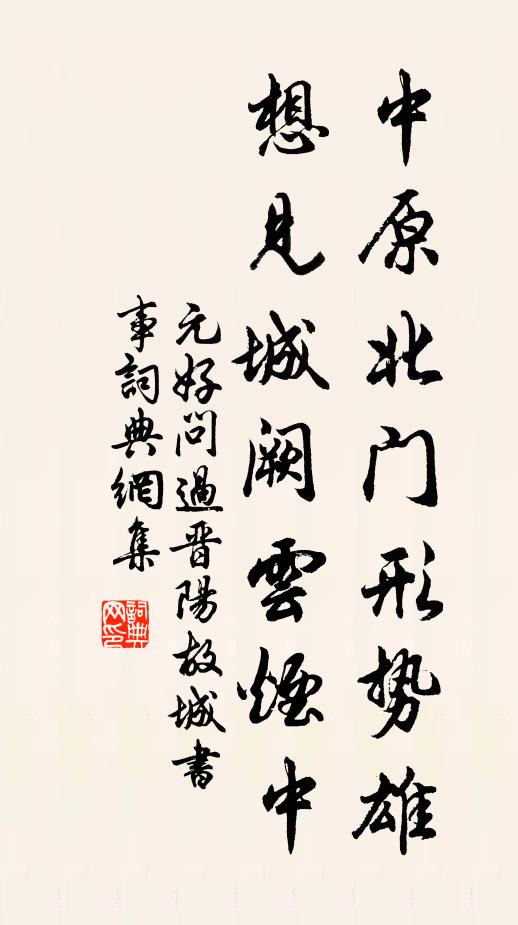 中原北门形势雄
想見城阙雲煙中
元好问過晋陽故城書
事詞典網集
詞典网印